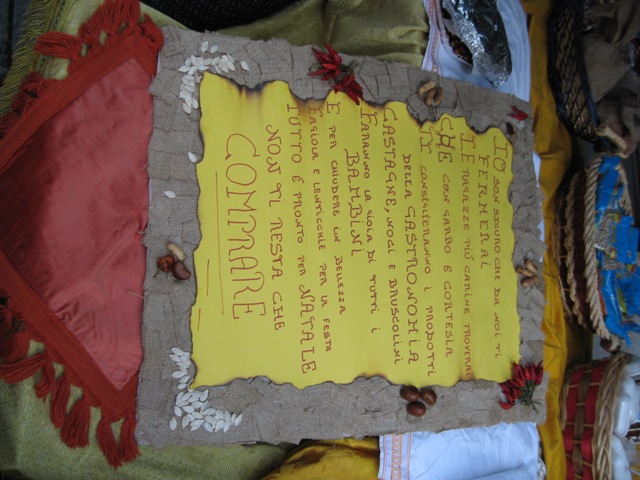 IO SON SICURO CHE DA NOI TI
FERMERAI
LE RAGAZZE PIÙ CARINE TROVERAI
CHE CON GARBO E CORTESIA
TI CONSIGLIERANNO I PRODOTTI
DELLA GASTRONOMIA
CASTAGNE, NOCI E BRUSCOLINI
FARANNO LA GIOIA DI TUTTI I
BAMBINI
E PER CHIUDERE IN BELLEZZA
FAGIOLA E LENTICCHIE PER LA FESTA
TUTTO É PRONTO PER NATALE
NON TI RESTA CHE
COMPRARE